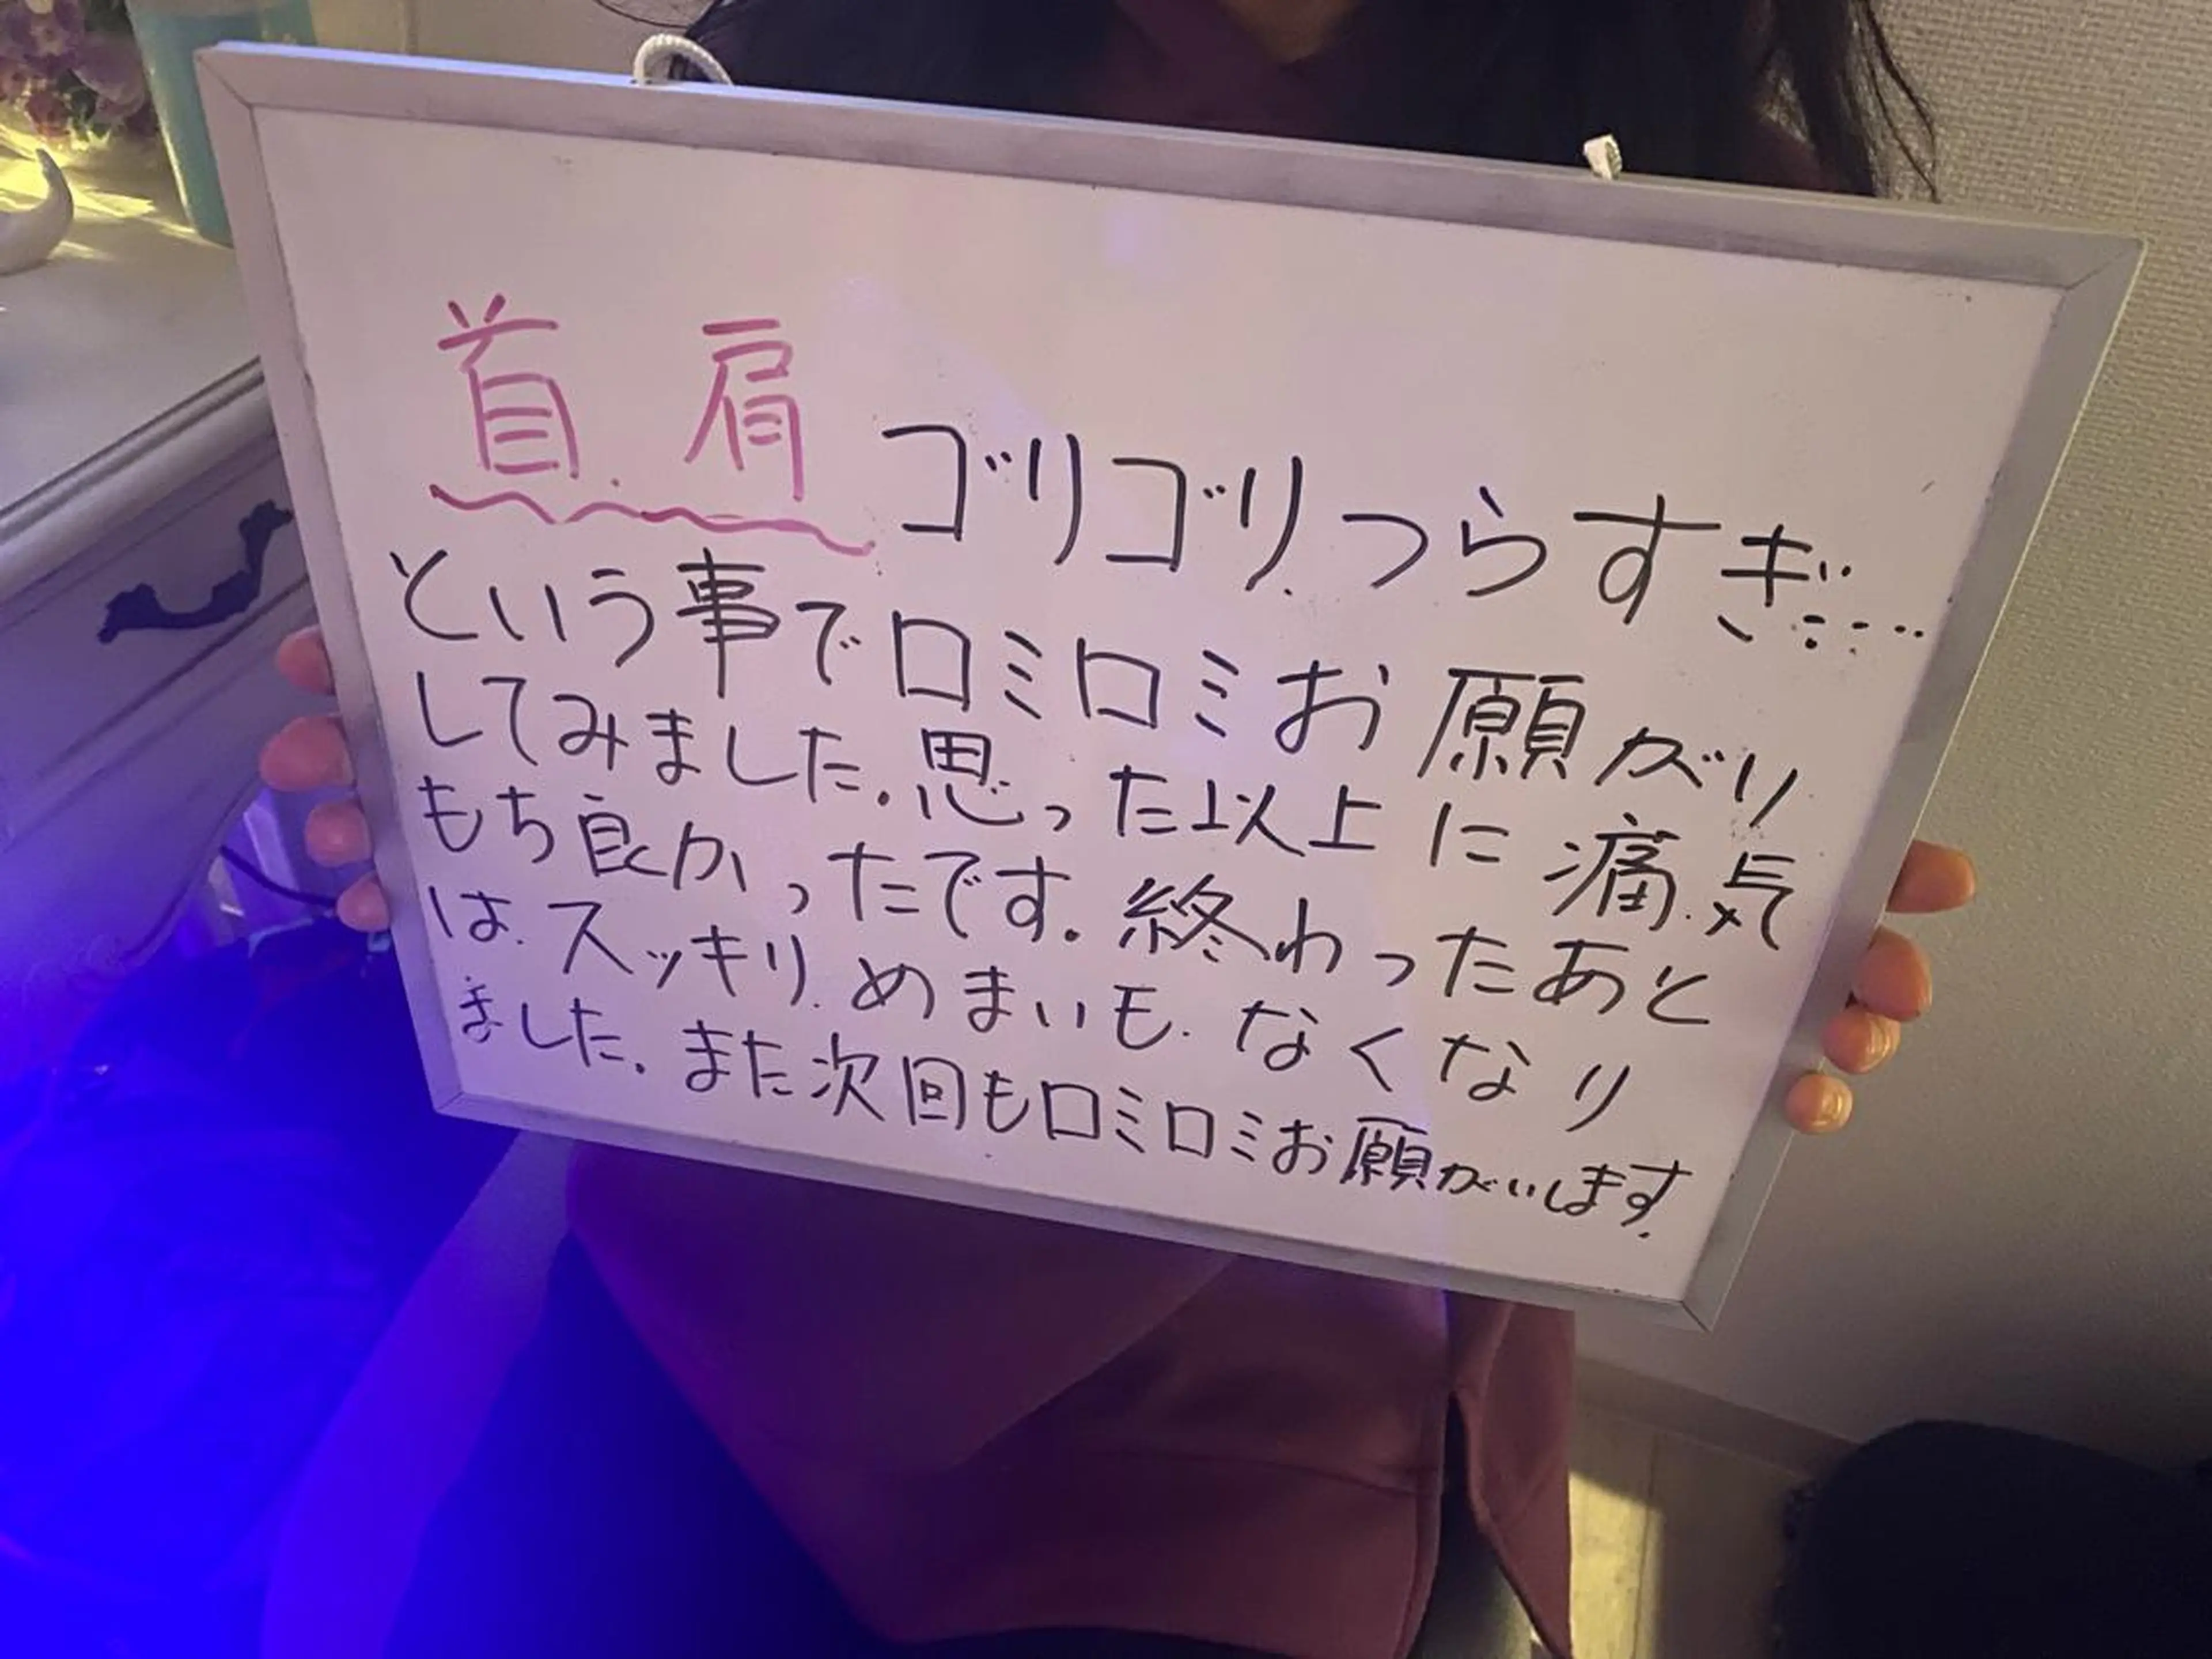 首.肩 ゴリゴリ.つらすぎ……
という事でロミロミお願がい
してみました.思った以上に痛.気
もち良かったです.終わったあと
は.スッキリ.めまいも.なくなり
ました.また次回もロミロミお願がいします.